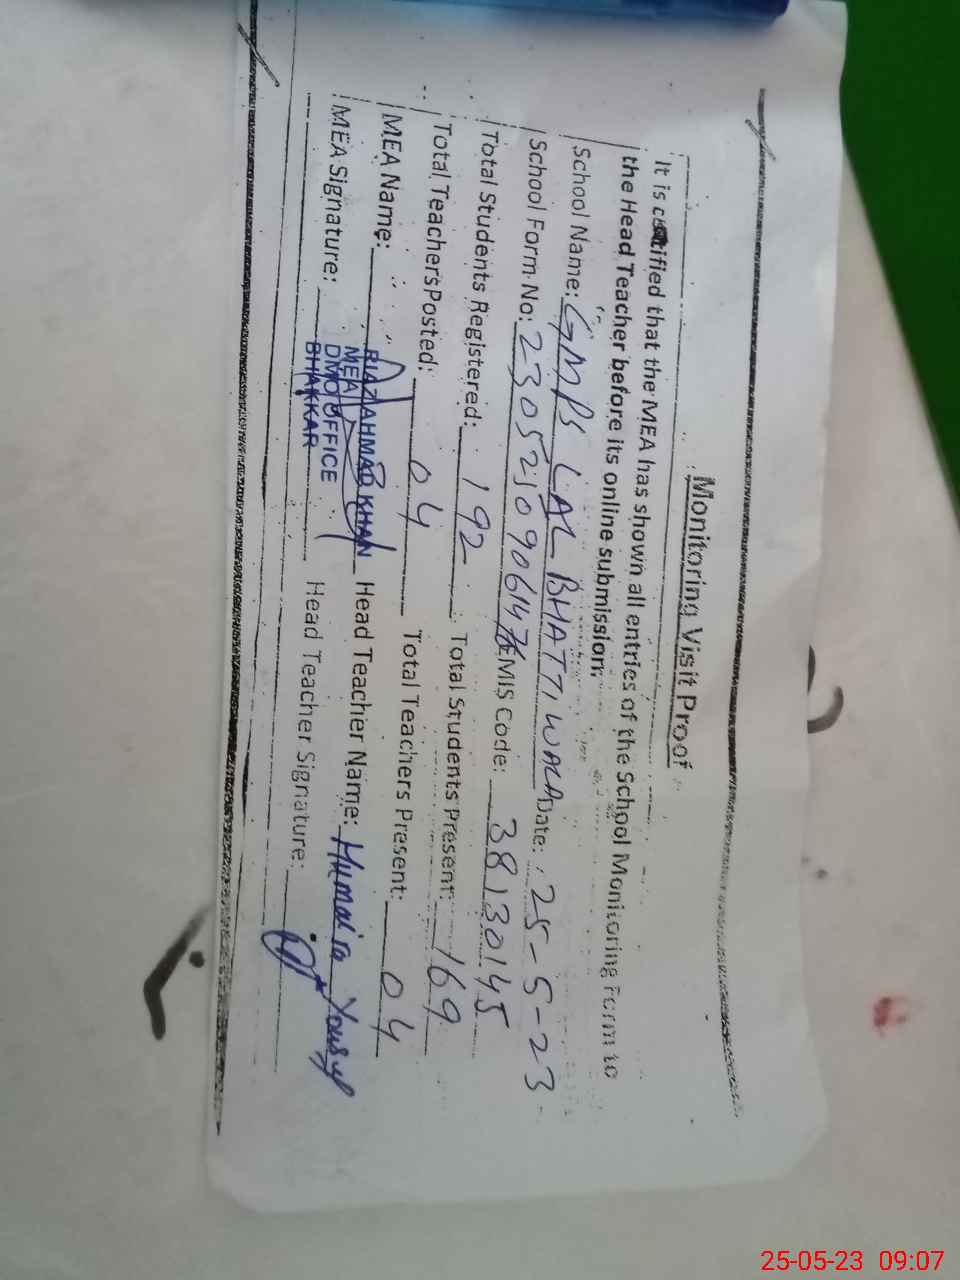 Monitoring Visit Proof
It is certified that the MEA has shown all entries of the School Monitoring Form to
the Head Teacher before its online submission.
School Name: GMPS LAL BHATTI WALA Date: 25-5-23
School Form No: 230525090614 EMIS Code: 38130145
Total Students Registered: 192 Total Students Present: 169
Total Teachers Posted: 04 Total Teachers Present: 04
MEA Name: RIAZ AHMAD KHAN Head Teacher Name: Humaira Yousuf
MEA
MEA Signature: DMO OFFICE Head Teacher Signature:
BHAKKAR
25-05-23 09:07